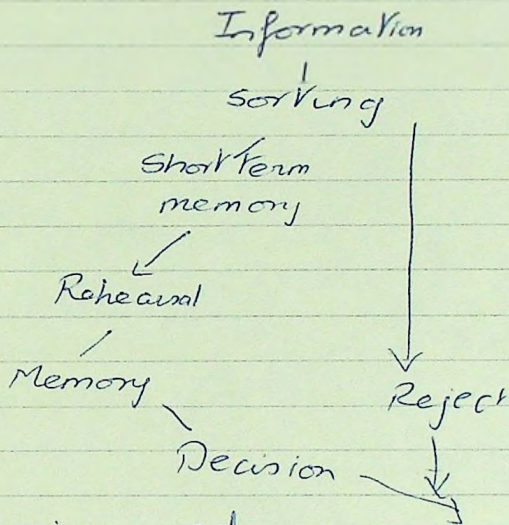 Information
Sorting
Short term
memory
Rehearsal
Memory
Reject
Decision